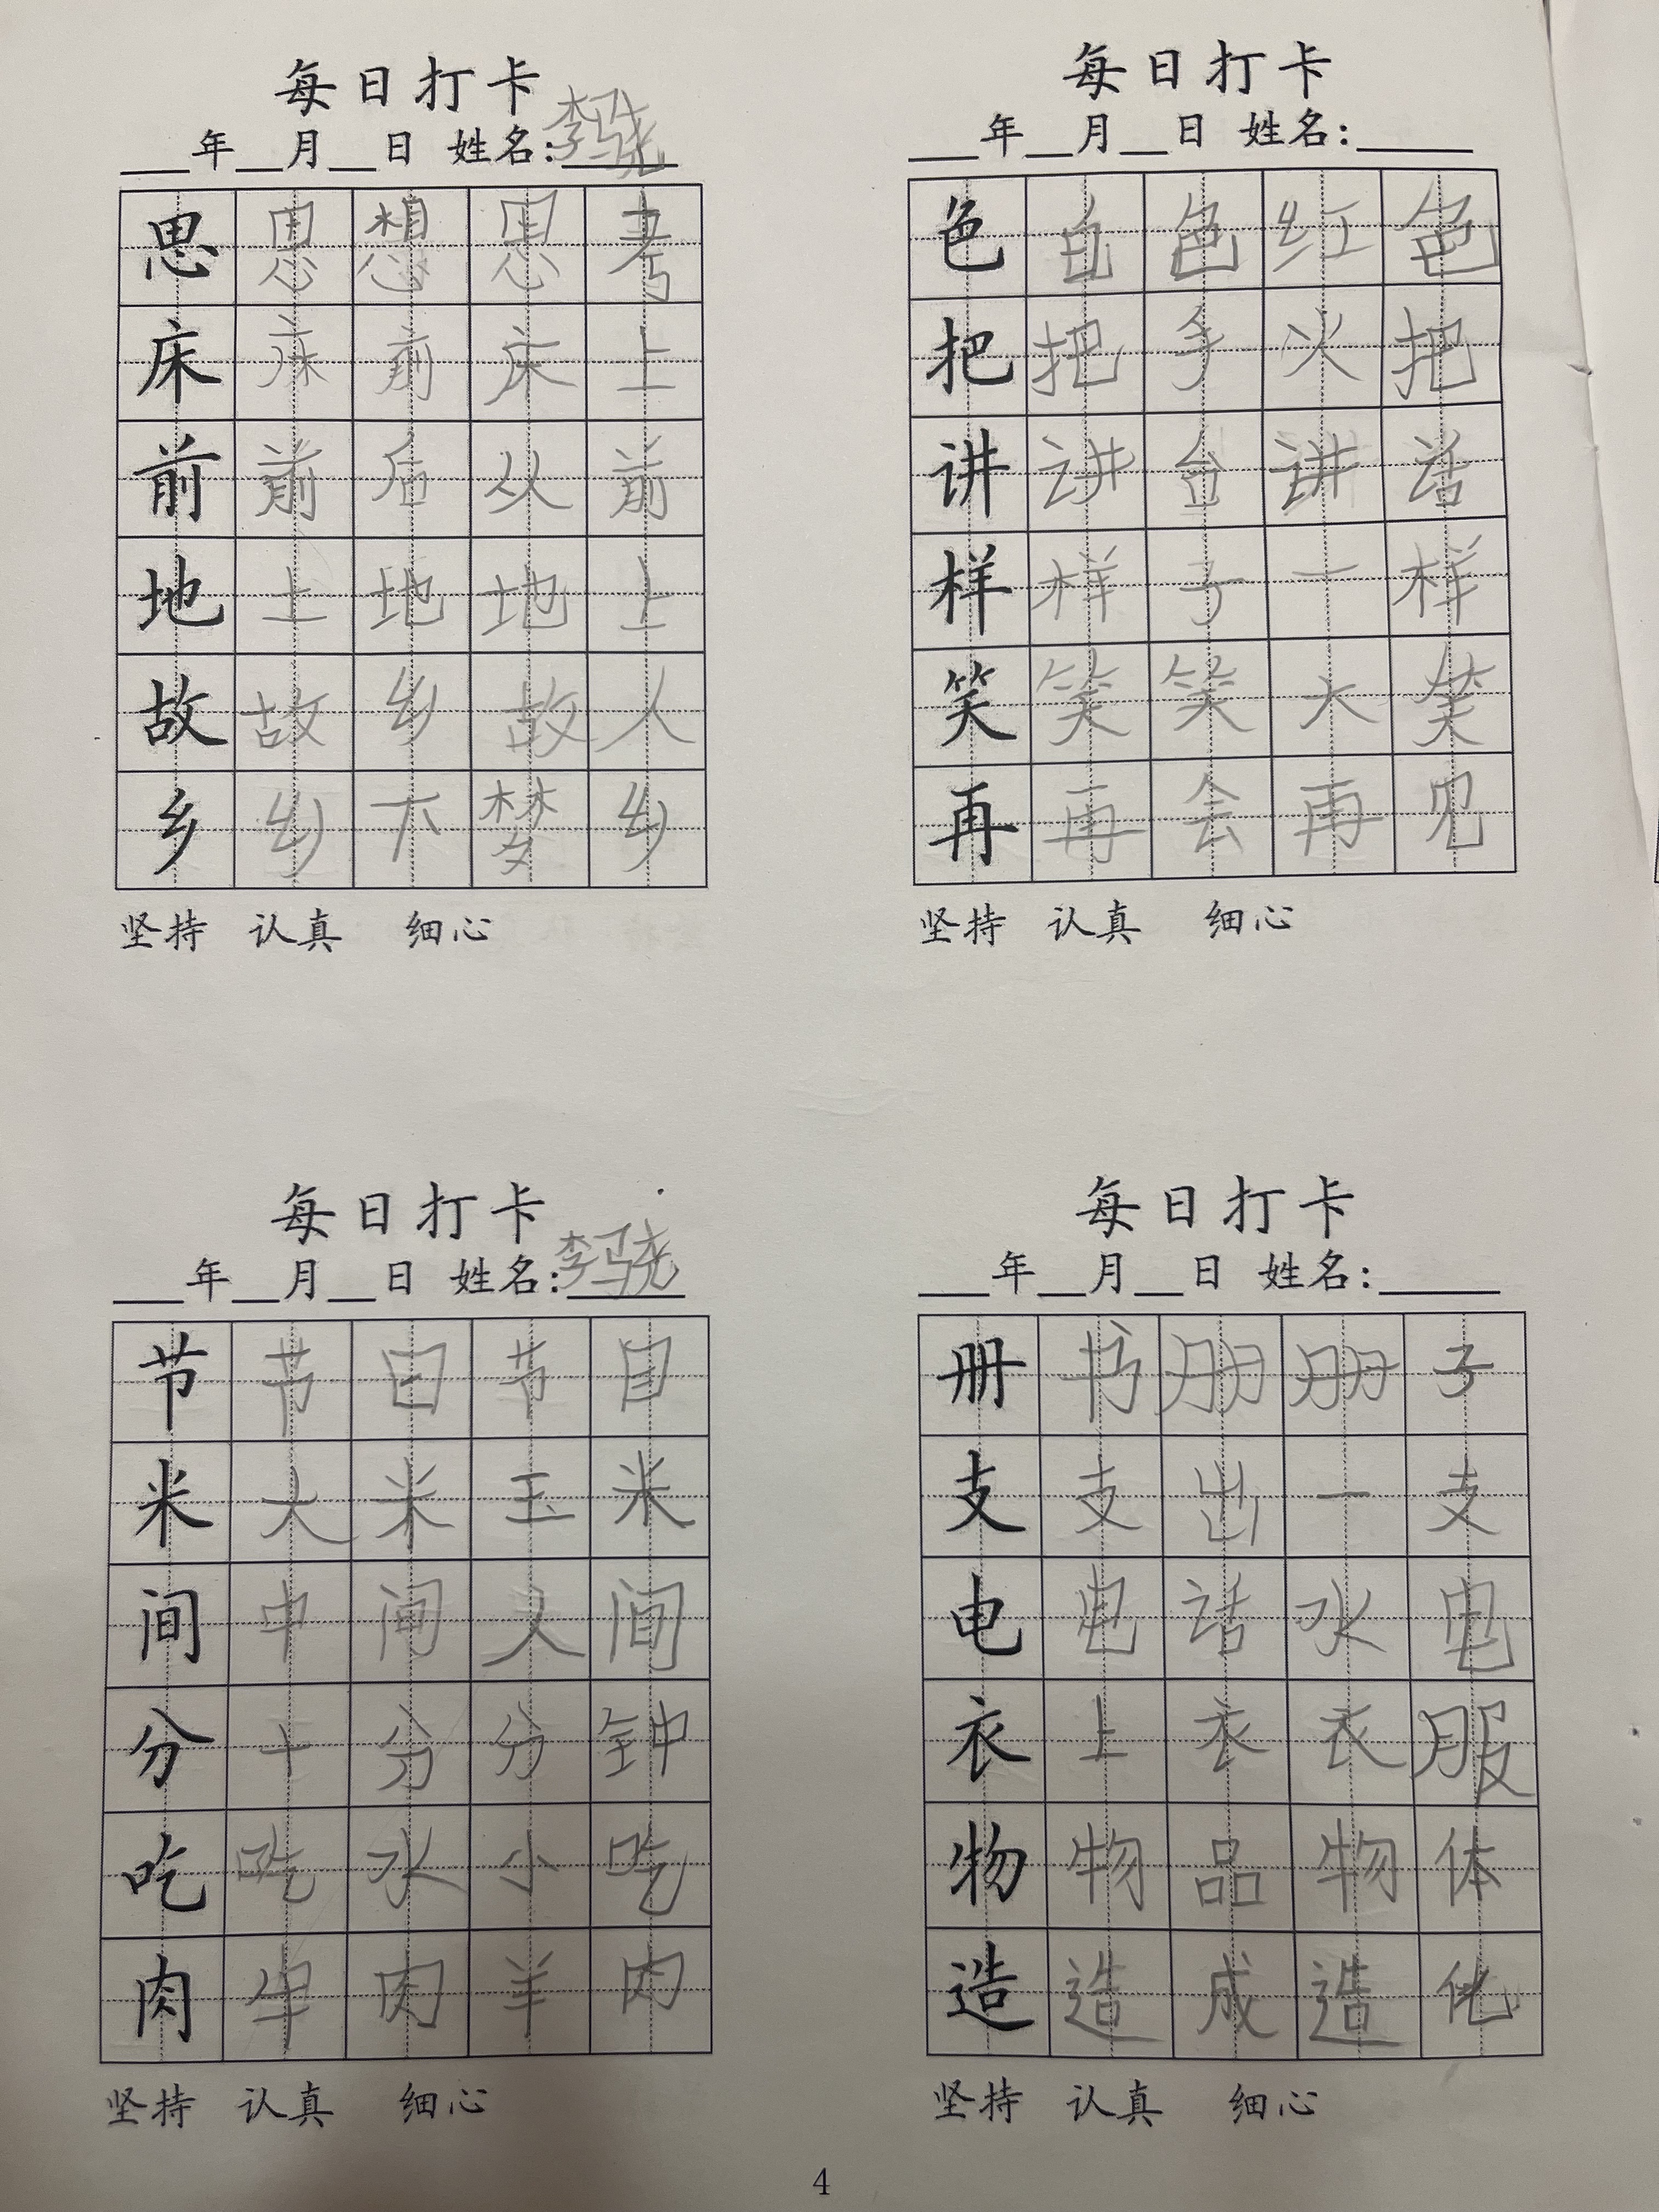 每日打卡
年 月 日 姓名:李骁
思 思 想 思 考
床 床 前 床 上
前 前 后 从 前
地 上 地 地 上
故 故 乡 故 人
乡 乡 下 梦 乡
坚持 认真 细心
每日打卡
年 月 日 姓名:
色 白 色 红 色
把 把 手 火 把
讲 讲 台 讲 话
样 样 子 一 样
笑 笑 笑 大 笑
再 再 会 再 见
坚持 认真 细心
每日打卡
年 月 日 姓名:李骁
节 节 日 节 目
米 大 米 玉 米
间 中 间 人 间
分 十 分 分 钟
吃 吃 水 小 吃
肉 牛 肉 羊 肉
坚持 认真 细心
每日打卡
年 月 日 姓名:
册 书 册 册 子
支 支 出 一 支
电 电 话 水 电
衣 上 衣 衣 服
物 物 品 物 体
造 造 成 造 化
坚持 认真 细心
4